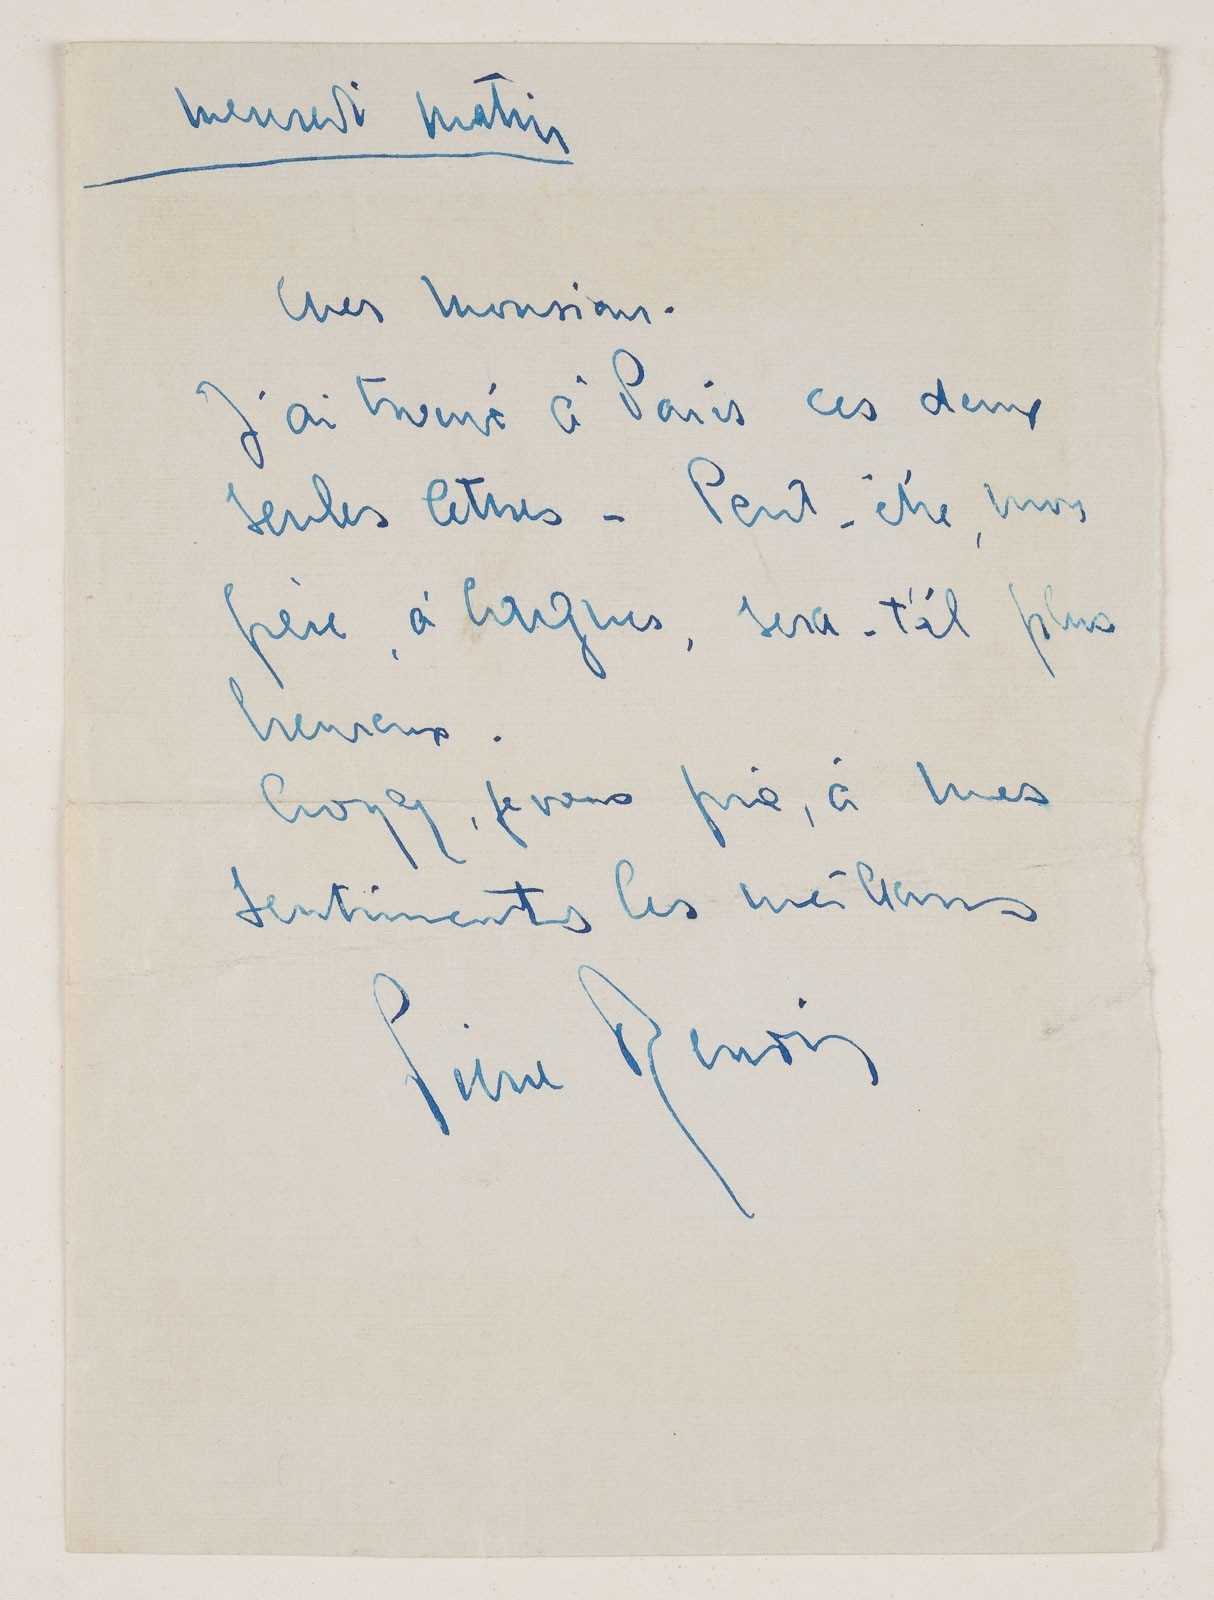 Mercredi matin
Cher Monsieur.
J'ai trouvé à Paris ces deux
seules lettres - Peut-être, mon
père, à Cagnes, sera-t'il plus
heureux.
Croyez, je vous prie, à mes
sentiments les meilleurs
Pierre Renoir